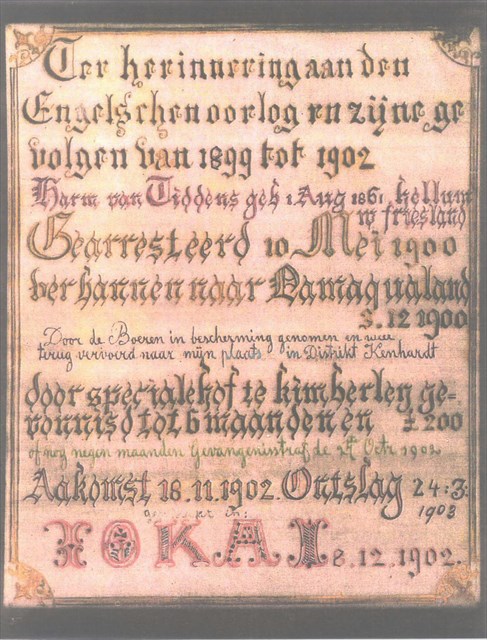 Ter herinnering aan den
Engelschen oorlog en zijne ge
volgen van 1899 tot 1902
Harm van Tiddens geb 1 Aug 1861 Kellum
w friesland
Gearresteerd 10 Meï 1900
verbannen naar Namaqualand
3.12 1900
Door de Boeren in bescherming genomen en weer
terug vervoerd naar mijn plaats in Distrikt Kenhardt
door specialehof te kimberley ge-
vonnisd tot 6 maanden en £ 200
of nog negen maanden Gevangenisstraf, de Octr 1902
Aakomst 18.11.1902. Ontslag 24:3:
1903
in:
TOKAI 8.12.1902.